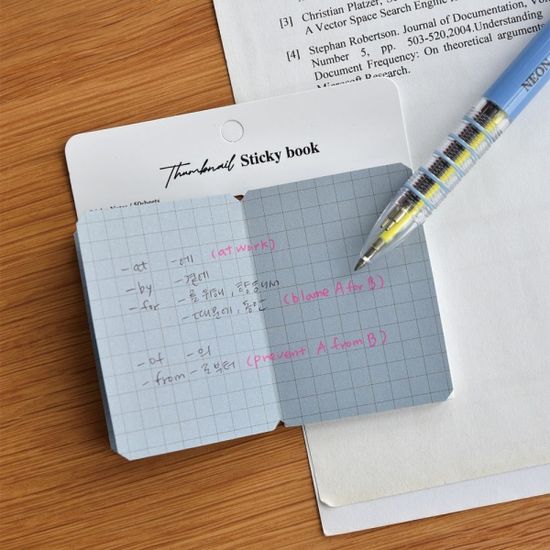 [3] Christian Platzer,
A Vector Space Search Engine
[4] Stephan Robertson. Journal of Documentation,
Number 5, pp. 503-520,2004.Understanding
Document Frequency: On theoretical arguments
Microsoft Research.
NEON
Thumbnail Sticky book
-at -에 (at work)
-by -곁에
-for -을 위해,
-때문에, 동안 (blame A for B)
-of -의
-from -로부터 (prevent A from B)